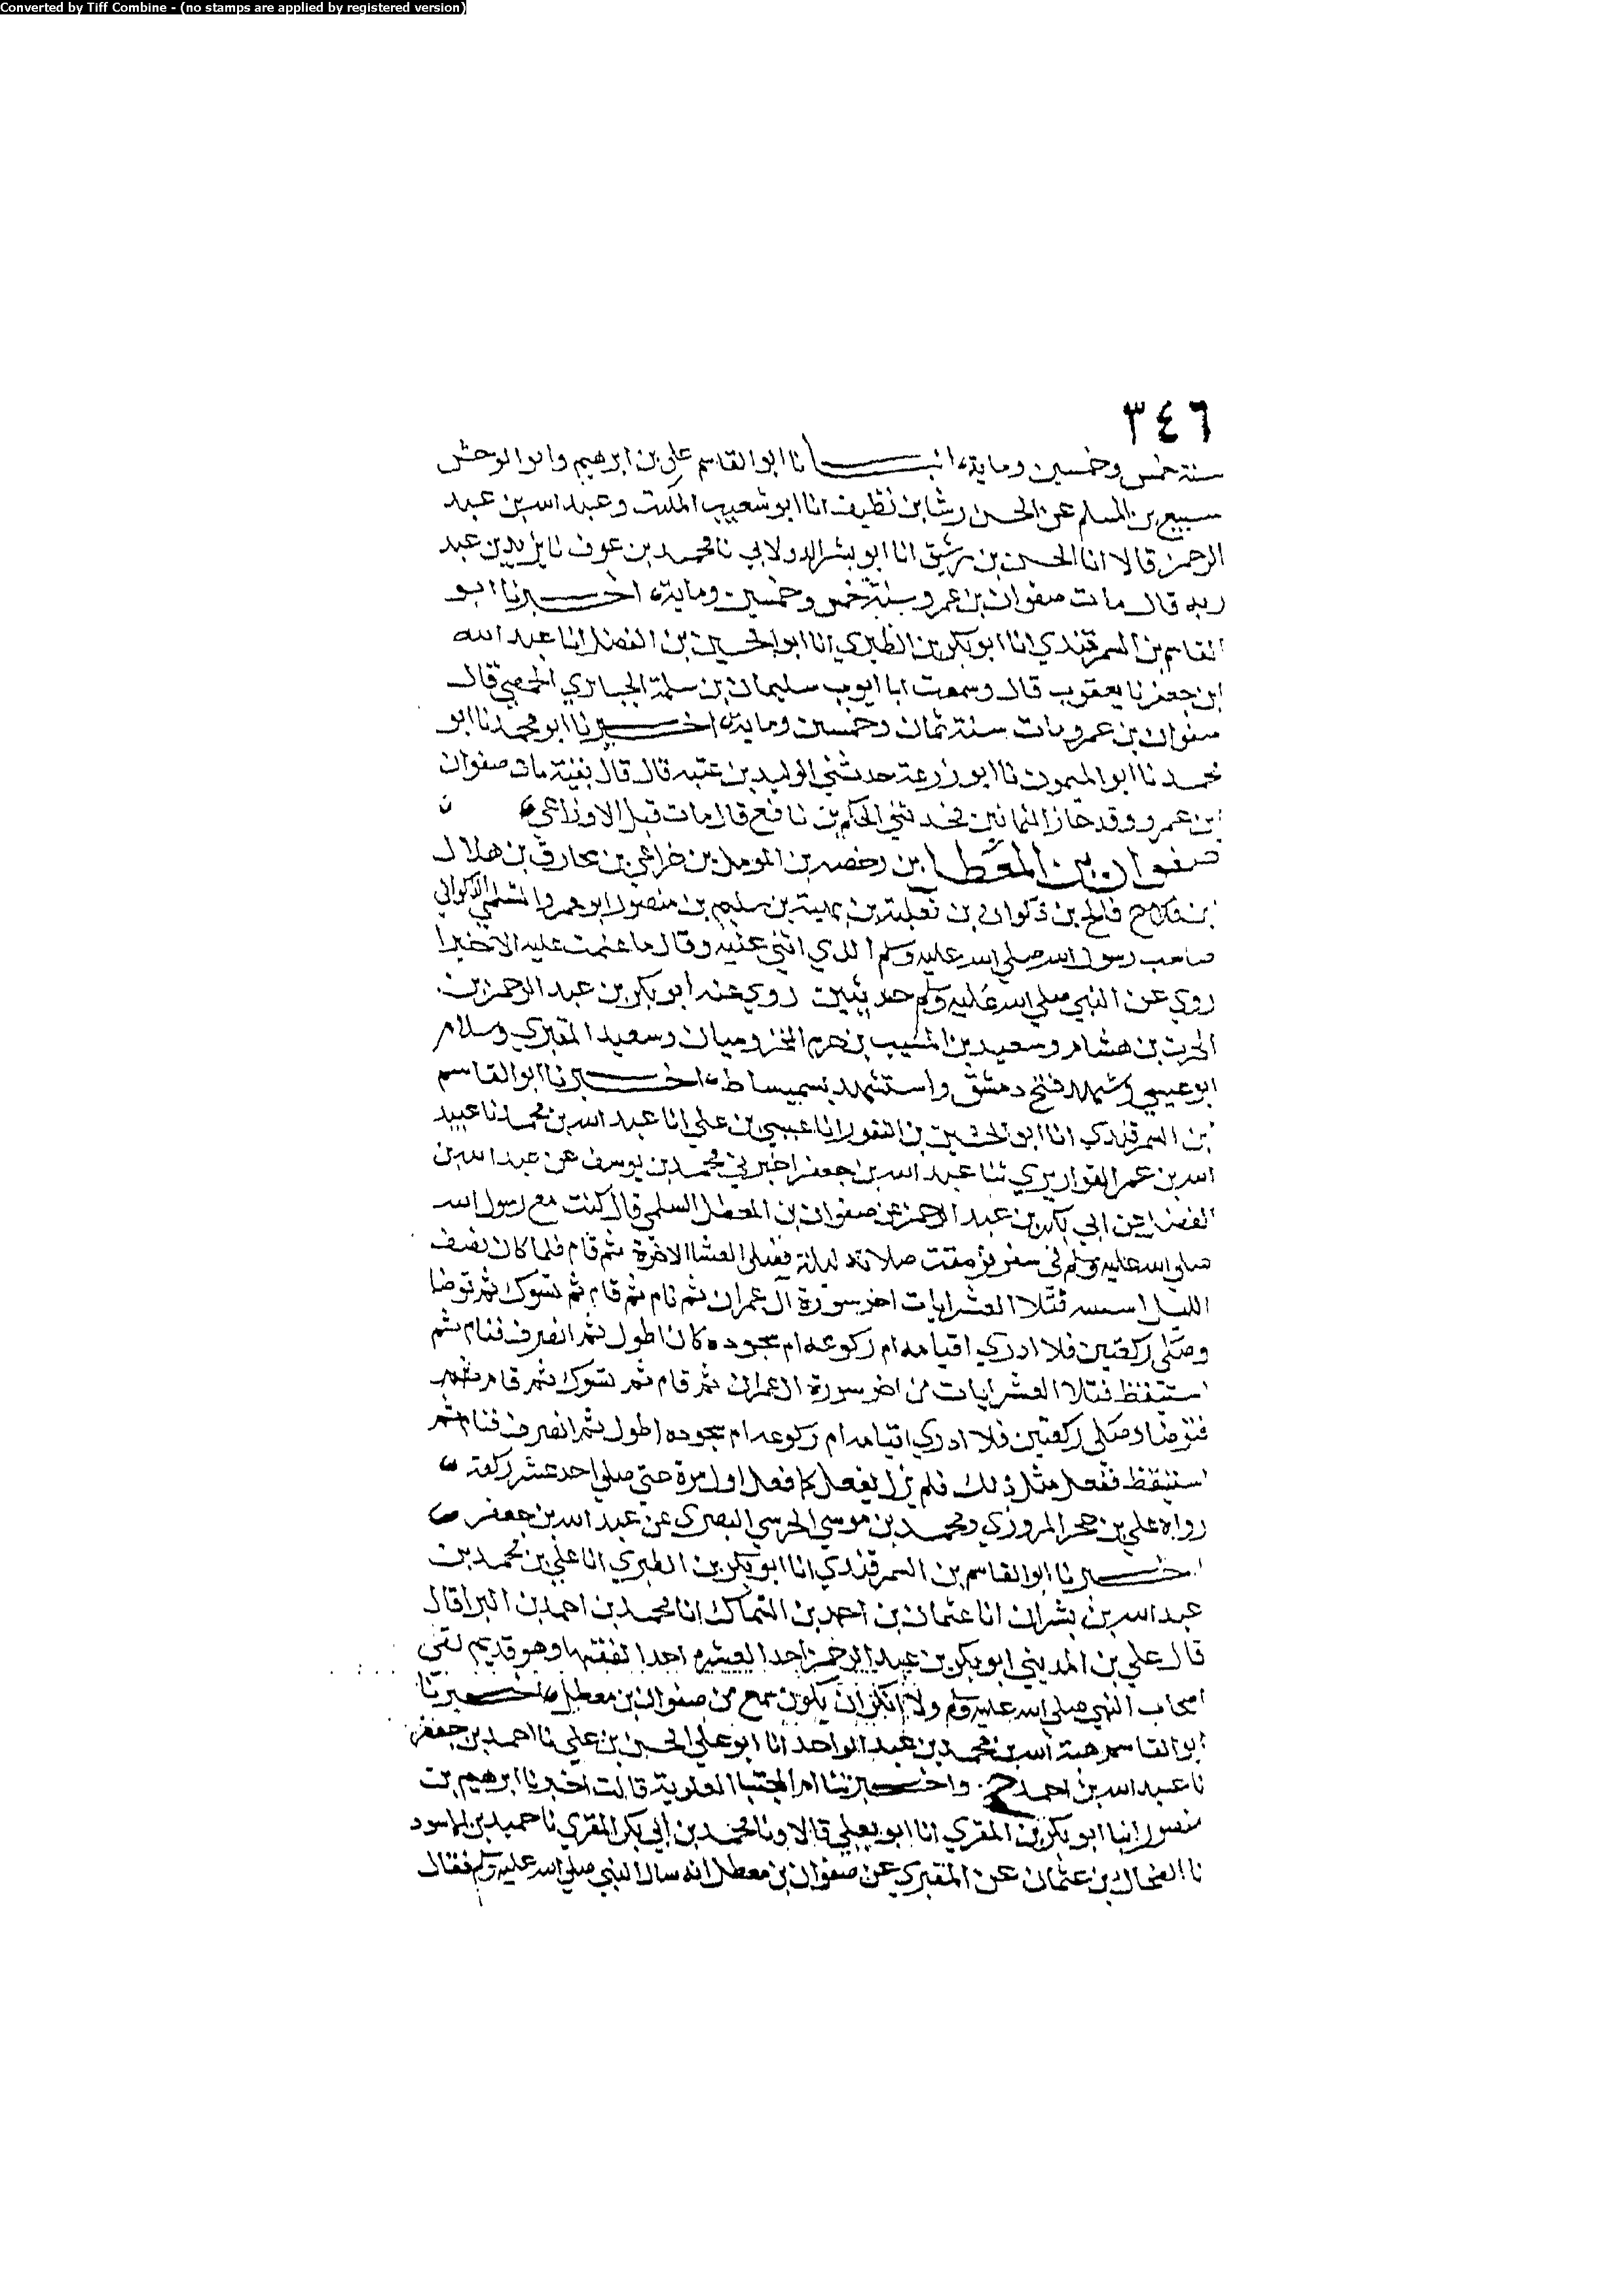 Converted by Tiff Combine - (no stamps are applied by registered version)
٣٤٦
سنة خمس وخمسين وماية، انبـــانا ابو القاسم علي بن ابرهيم وابو الوحش
سبيع بن المسلم عن الحسن رشا بن نظيف انا ابو شعيب المكتب وعبد الله بن عبد
الرحمن قالا انا الحسن بن رشيق انا ابو بشر الدولابي نا محمد بن عوف نا يزيد بن عبد
ربه قال مات صفوان بن عمرو سنة خمس وخمسين وماية، اخــبرنا ابو
القاسم بن السمرقندي انا ابو بكر بن الطبري انا ابو الحسين بن الفضل انا عبد الله
ابن جعفر نا يعقوب قال وسمعت ابا ايوب سليمان بن سلمة الجبايري الحمصي قال
صفوان بن عمرو مات سنة ثمان وخمسين وماية، اخــبرنا ابو محمد نا ابو
محمد نا ابو الميمون نا ابو زرعة حدثني الوليد بن عتبه قال قال بقية مات صفوان
ابن عمرو وقد جاز الثمانين فحدثني الحكم بن نافع قال مات قبل الاوزاعي
صفوان بن المعطل ابن رخصه بن المومل بن خزاعي بن محارق بن هلال
بن فالح بن ذكوان بن ثعلبة بن بهية بن سليم بن منصور ابو عمرو السلمي الذكواني
صاحب رسول الله صلي الله عليه وسلم الذي اثني عليه وقال ما علمت عليه الا خيرا
روي عن النبي صلي الله عليه وسلم حديثين روي عنه ابو بكر بن عبد الرحمن بن
الحرث بن هشام وسعيد بن المسيب بن حزم المخزوميان وسعيد المقبري وسلام
ابو عيسي وشهد فتح دمشق واستشهد بسميساط، اخــبرنا ابو القاسم
بن السمرقندي انا ابو الحسين بن النقور انا عيسي بن علي انا عبد الله بن محمد نا عبيد
الله بن عمر القواريري ثنا عبد الله بن جعفر اخبرني محمد بن يوسف عن عبد الله بن
الفضل عن ابي بكر بن عبد الرحمن عن صفوان بن المعطل السلمي قال كنت مع رسول الله
صلي الله عليه وسلم في سفر فرمقت صلاته ليلة فصلي العشا الاخرة ثم قام فلما كان نصف
الليل فتلا العشر ايات اخر سورة آل عمران ثم نام ثم قام ثم تسوك ثم توضا
وصلي ركعتين فلا ادري اقيامه ام ركوعه ام سجوده كان اطول ثم انصرف فنام ثم
استيقظ فتلا العشر ايات من اخر سورة ال عمران ثم قام ثم تسوك ثم قام ثم
فتوضا وصلي ركعتين فلا ادري اقيامه ام ركوعه ام سجوده اطول ثم انصرف فنام ثم
استيقظ ففعل مثل ذلك فلم يزل يفعل كما فعل اول مرة حتي صلي احد عشر ركعة
رواه علي بن حجر المروزي ومحمد بن موسي الحرسي البصري عن عبد الله بن جعفر
اخــبرنا ابو القاسم بن السمرقندي انا ابو بكر بن الطبري انا علي بن محمد بن
عبد الله بن بشران انا عثمان بن احمد بن السماك انا محمد بن احمد بن البرا قال
قال علي بن المديني ابو بكر بن عبد الرحمن احد العشره احد الفقها وهو قديم لقي
اصحاب النبي صلي الله عليه وسلم ولا انكر ان يكون سمع من صفوان بن معطل، اخــبرنا
ابو القاسم هبة الله بن محمد بن عبد الواحد انا ابو علي الحسن بن علي نا احمد بن جعفر
نا عبد الله بن احمد ح. واخــبرتنا ام المجتبا العلوية قالت اخبرنا ابرهيم بن
منصور انبا ابو بكر بن المقري انا ابو يعلي قالا ونا محمد بن ابي بكر المقري نا حميد بن الاسود
نا الضحاك بن عثمان عن المقبري عن صفوان بن معطل انه سال النبي صلي الله عليه وسلم فقال